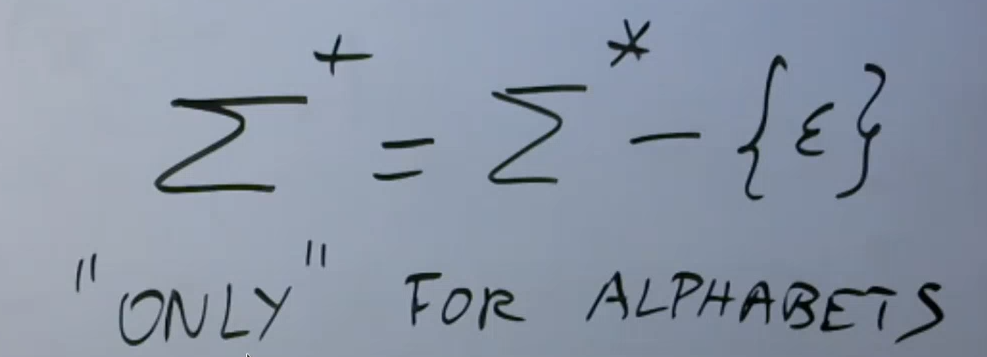 Σ⁺ = Σ* - {ε}
"ONLY" FOR ALPHABETS